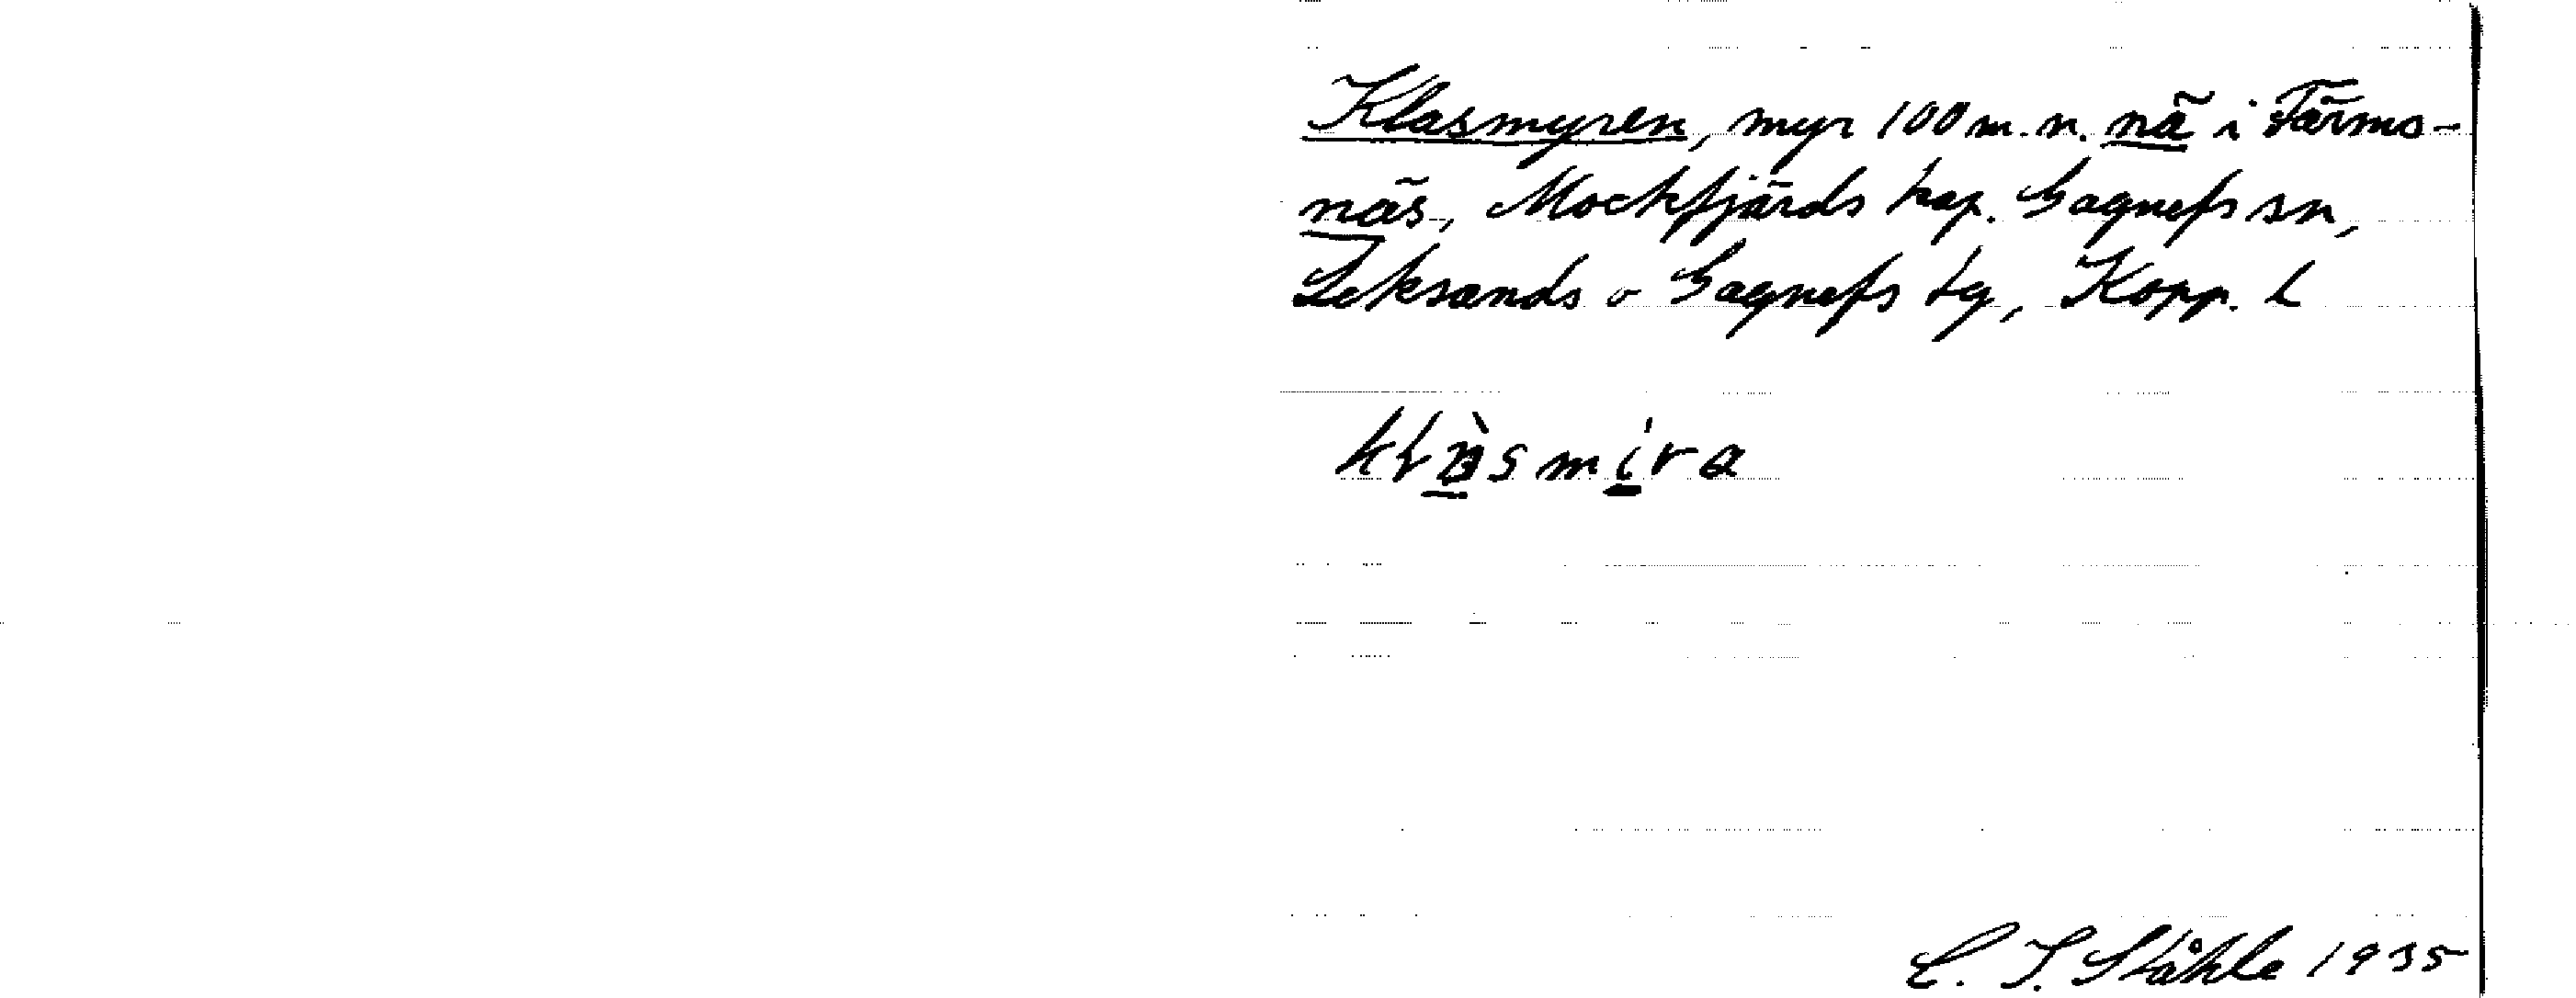 Klasmyren, myr 100 m. n. nä i Tärms-
näs, Mockfjärds kap. Gagnefs sn,
Leksands o Gagnefs tg, Kopp. l
C. I. Ståhle 1935